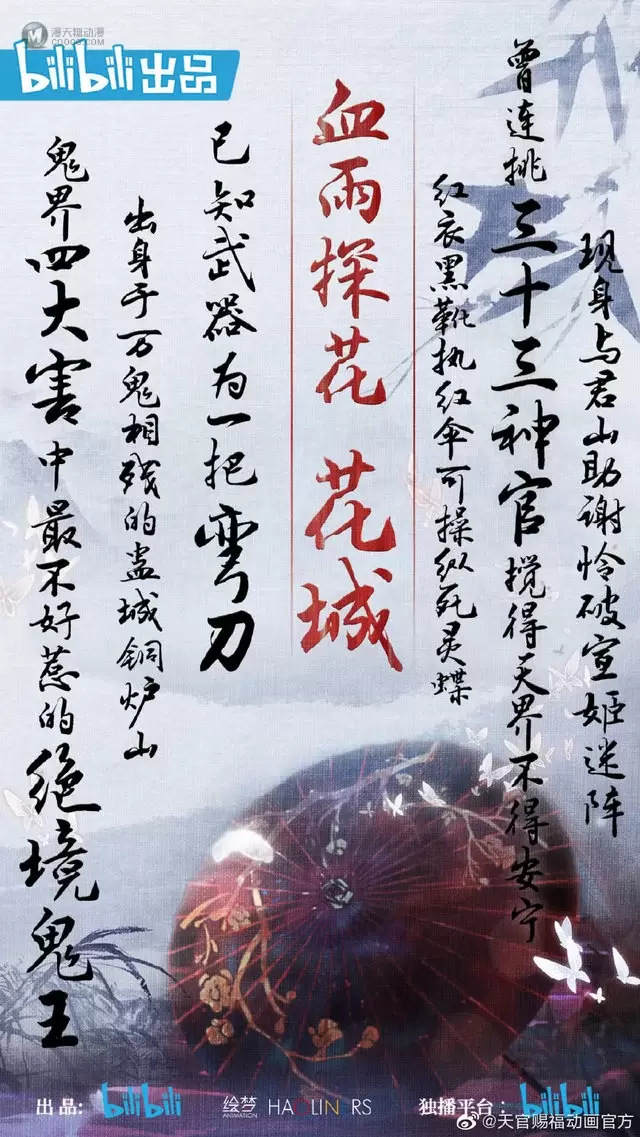 漫天糖动漫
COCOC.COM
bilibili出品
现身与君山助谢怜破宣姬迷阵
曾连挑三十三神官搅得天界不得安宁
红衣黑靴执红伞可操纵死灵蝶
血雨探花 花城
已知武器为一把弯刀
出身于万鬼相残的蛊城铜炉山
鬼界四大害中最不好惹的绝境鬼王
出品: bilibili 绘梦 ANIMATION HAOLINERS 独播平台: bilibili
@天官赐福动画官方